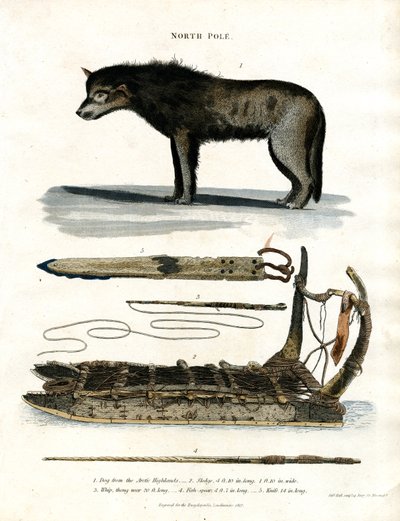 NORTH POLE.
1
5
3
2
4
1. Dog from the Arctic Highlands. 2. Sledge, 4 ft. 10 in. long, 1 ft. 10 in. wide.
3. Whip, thong near 20 ft. long. 4. Fish-spear, 4 ft. 7 in. long. 5. Knife 14 in. long.
Engraved for the Encyclopædia Londinensis 1817.